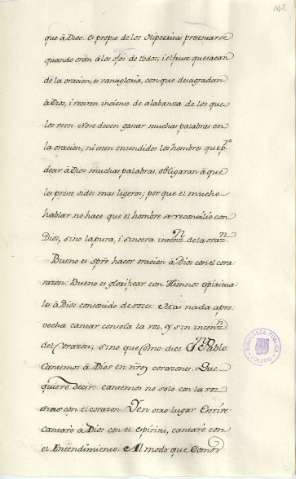 162
que à Dios. Es propio de los Hipocritas presentarse
quando orán à los ojos de todos; i el fruto que sacan
de la oracion, es vanagloria, con que desagradan
à Dios, i no con incienso de alabanza de los que
los veen. No se deven gastar muchas palabras en
la oracion, ni esten entendidos los hombres que p.r
decir à Dios muchas palabras, obligaran à que
los preste oidos mas ligeros; por que el mucho
hablar no hace que el hombre se reconcilie con
Dios, sino la pura, i sincera intenn. de la oran.
Bueno es spre hacer oracion à Dios con el cora
razon: Bueno es glorificar con Hinnos espiritua
les à Dios con sonido de voces. Mas nada apro
vecha cantar con sola la voz, y sin intenn.
del Corazon; sino que Como dice Sn. Pablo
Cantemos à Dios en nros. corazones. Que
quiere decir: cantemos no solo con la voz
sino con el corazon. Y en otro lugar Escrive
cantaré à Dios con el espiritu, cantaré con
el Entendimiento. Al modo que Como